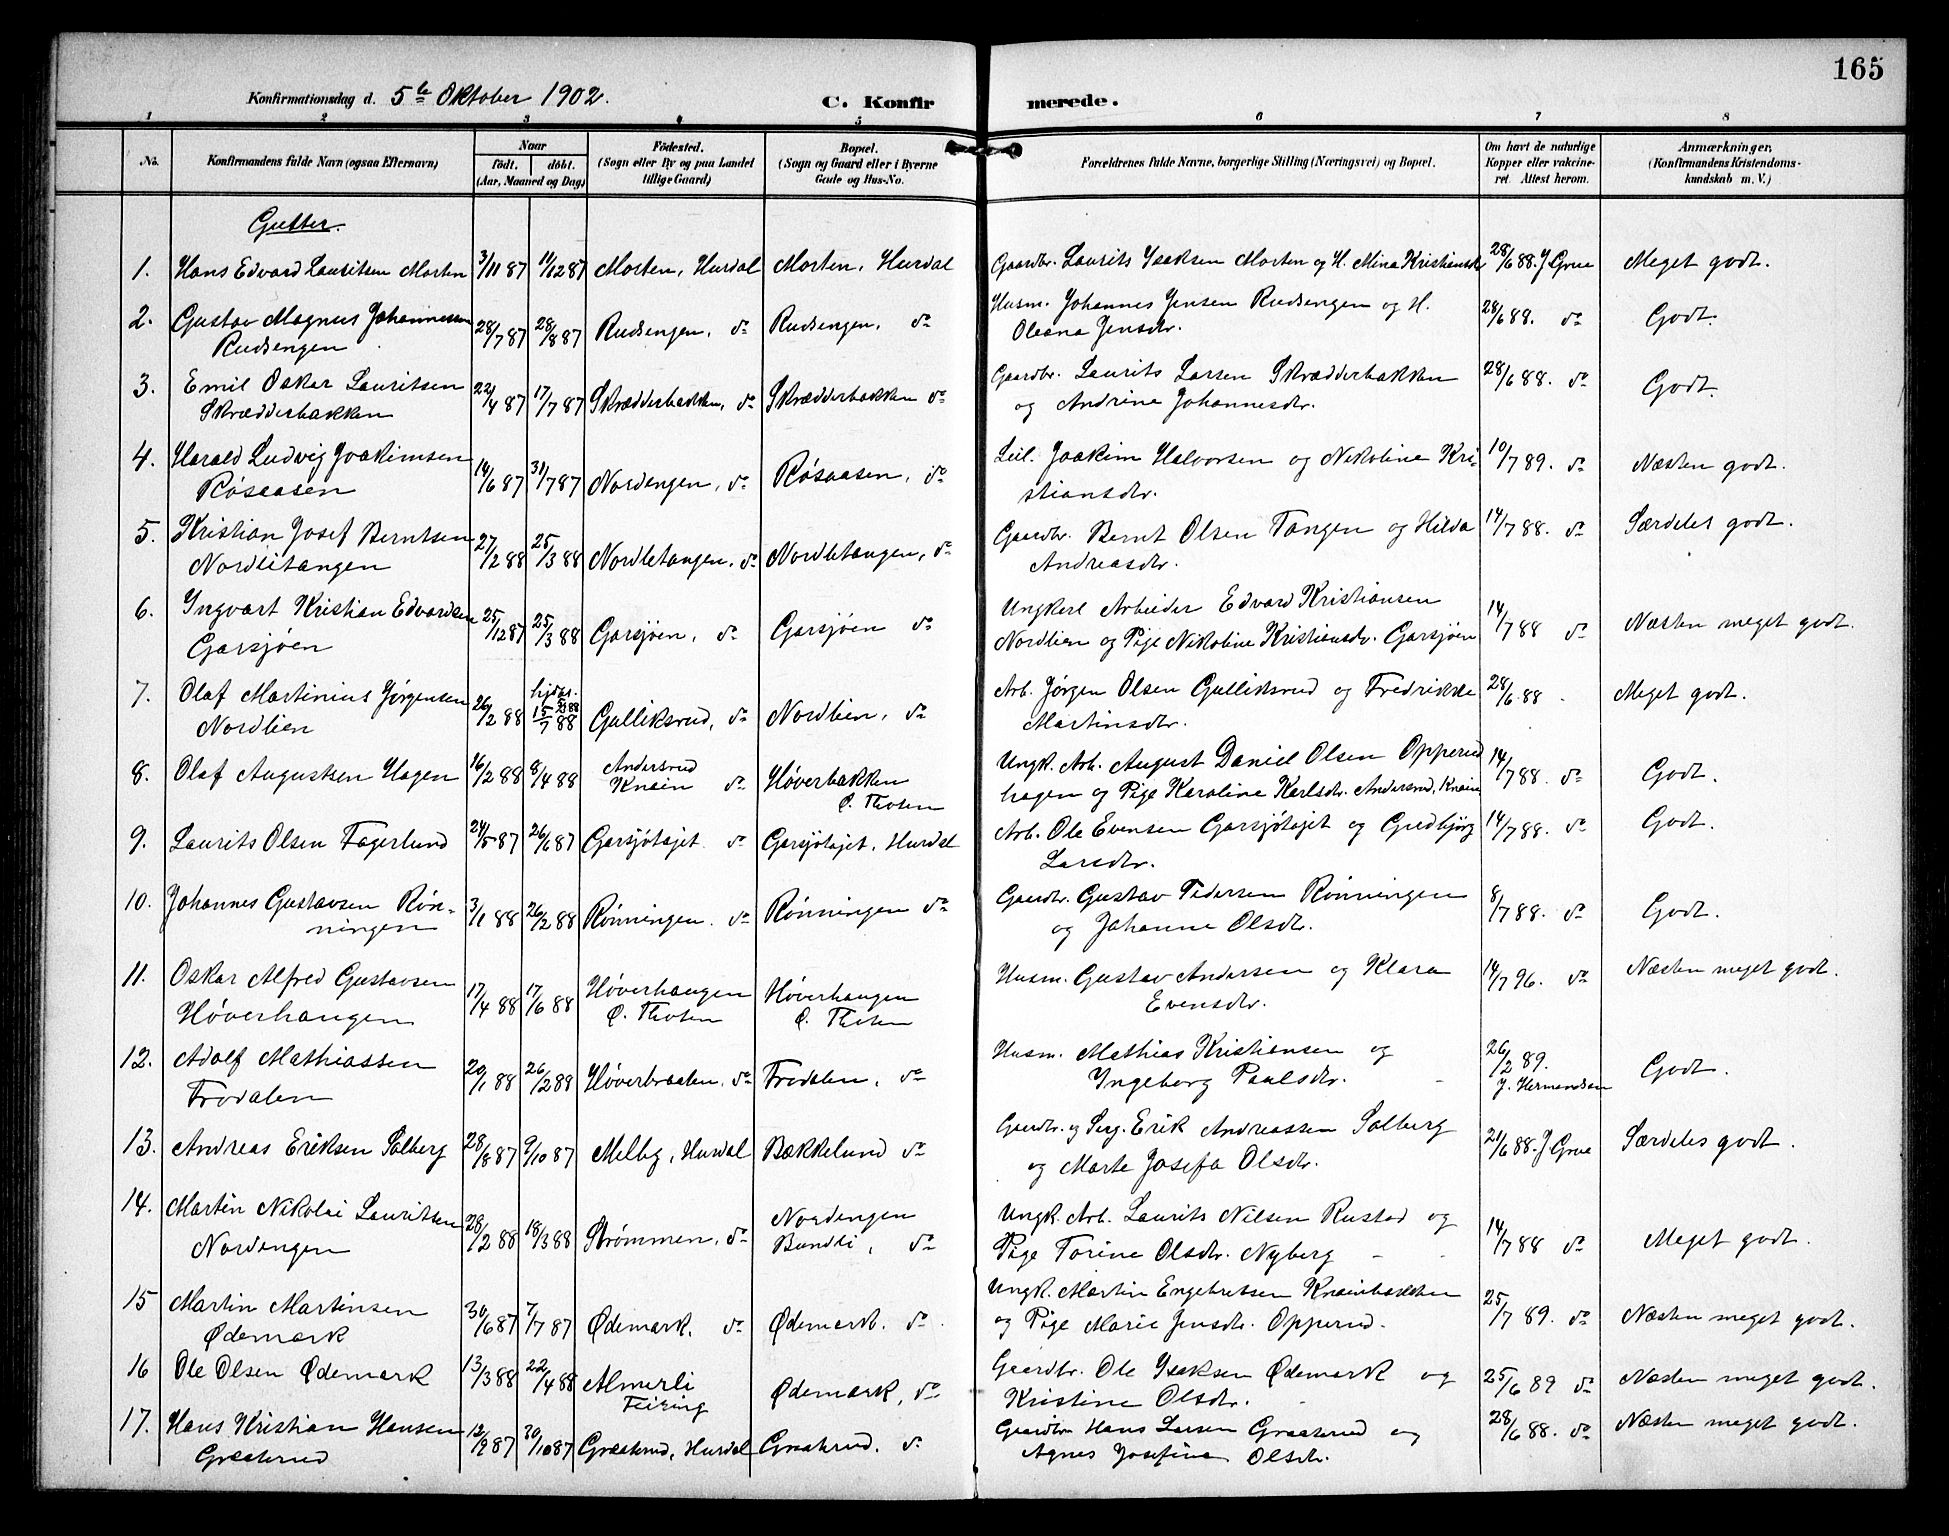 165
Konfirmationsdag d. 5te Oktober 1902. C. Konfirmerede.
1 2 3 4 5 6 7 8
No. Konfirmandens fulde Navn (ogsaa Efternavn) Naar født. døbt. (Aar, Maaned og Dag) Fødested. (Sogn eller By og paa Landet tillige Gaard) Bopæl. (Sogn og Gaard eller i Byerne Gade og Hus-No. Forældrenes fulde Navne, borgerlige Stilling (Næringsvei) og Bopæl. Om havt de naturlige Kopper eller vakcineret. Attest herom. Anmærkninger, (Konfirmandens Kristendomskundskab m. V.)
Gutter.
1. Hans Edvard Lauritsen Morten 3/11 87 11/12 87 Morten, Hurdal Morten, Hurdal Gaardbr. Laurits Isaksen Morten og H. Mina Kristiansdr 28/6 88. J Grue Meget godt.
2. Gustav Magnus Johannessen 28/7 87 28/8 87 Rudsengen, do Rudsengen, do Husm. Johannes Jensen Rudsengen og H. 28/6 88. do Godt.
Rudsengen Oleana Jensdr.
3. Emil Oskar Lauritsen 22/4 87 17/7 87 Skrædderbakken, do Skrædderbakken do Gaardbr. Laurits Larsen Skrædderbakken 28/6 88. do Godt.
Skrædderbakken og Andrine Johannesdr.
4. Harald Ludvig Joakimsen 14/6 87 31/7 87 Nordengen, do Røsaasen, do Leil. Joakim Halvorsen og Nikoline Kri- 10/7 89. do Næsten godt.
Røsaasen stiansdr.
5. Kristian Josef Berntsen 27/2 88 25/3 88 Nordlitangen, do Nordlitangen, do Gaardbr. Bernt Olsen Tangen og Hilda 14/7 88. do Særdeles godt.
Nordlitangen Andreasdr.
6. Ingvart Kristian Edvardsen 25/12 87 25/3 88 Garsjøen, do Garsjøen do Ungkerl Arbeider Edvard Kristiansen 14/7 88 do Næsten meget godt.
Garsjøen Nordlien og Pige Nikoline Kristiansdr. Garsjøen
7. Olaf Martinius Jørgensen 26/2 88 15/7 88 Gulliksrud, do Nordlien, do Arb. Jørgen Olsen Gulliksrud og Fredrikke 28/6 88 Meget godt.
Nordlien Martinsdr.
8. Olaf Augustsen Hagen 16/2 88 8/4 88 Andersrud Knain do Høverbakken Ø. Thoten Ungk. Arb. August Daniel Olsen Opperud 14/7 88. do Godt.
hagen og Pige Karoline Karlsdr. Andersrud, Knain
9. Laurits Olsen Fagerlund 24/5 87 26/6 87 Garsjøtajet do Garsjøtajet, Hurdal Arb. Ole Evensen Garsjøtajet og Gudbjørg 14/7 88. do Godt.
Larsdr.
10. Johannes Gustavsen Røn- 3/1 88 26/2 88 Rønningen. do Rønningen do Gaardbr. Gustav Pedersen Rønningen 8/7 88. do Godt.
ningen og Johanne Olsdr.
11. Oskar Alfred Gustavsen 17/4 88 17/6 88 Høverhaugen Ø. Thoten Høverhaugen Ø. Thoten Husm. Gustav Andersen og Klara 14/7 96. do Næsten meget godt.
Høverhaugen Evensdr.
12. Adolf Mathiassen 20/1 88 26/2 88 Høverbraaten, do Frodalen, do Husm. Mathias Kristiansen og 26/2 89. J. Hermandsen Godt.
Frodalen Ingeborg Paulsdr.
13. Andreas Eriksen Solberg 28/8 87 9/10 87 Melby, Hurdal Bækkelund do Gaardbr. og Serg. Erik Andreassen Solberg 21/6 88. J Grue Særdeles godt.
og Marte Josefa Olsdr.
14. Martin Nikolai Lauritsen 28/2 88 18/3 88 Strømmen, do Nordengen Bunddi, do Ungk. Arb. Laurits Nilsen Rustad og 14/7 88 do Meget godt.
Nordengen Pige Torine Olsdr. Nyberg
15 Martin Martinsen 30/6 87 7/7 87 Ødemark, do Ødemark. do Ungk. Martin Engebretsen Knainbakken 25/7 89. do Næsten meget godt.
Ødemark og Pige Marie Jensdr. Opperud.
16 Ole Olsen Ødemark 13/3 88 22/4 88 Almerli Feiring Ødemark, do Gaardbr. Ole Isaksen Ødemark og 25/6 89 do Næsten meget godt.
Kristine Olsdr.
17. Hans Kristian Hansen 12/9 87 30/10 87 Graaterud, Hurdal Graaterud, do Gaardbr Hans Larsen Graaterud og 28/6 88. do Næsten meget godt.
Graaterud Agnes Josefine Olsdr.